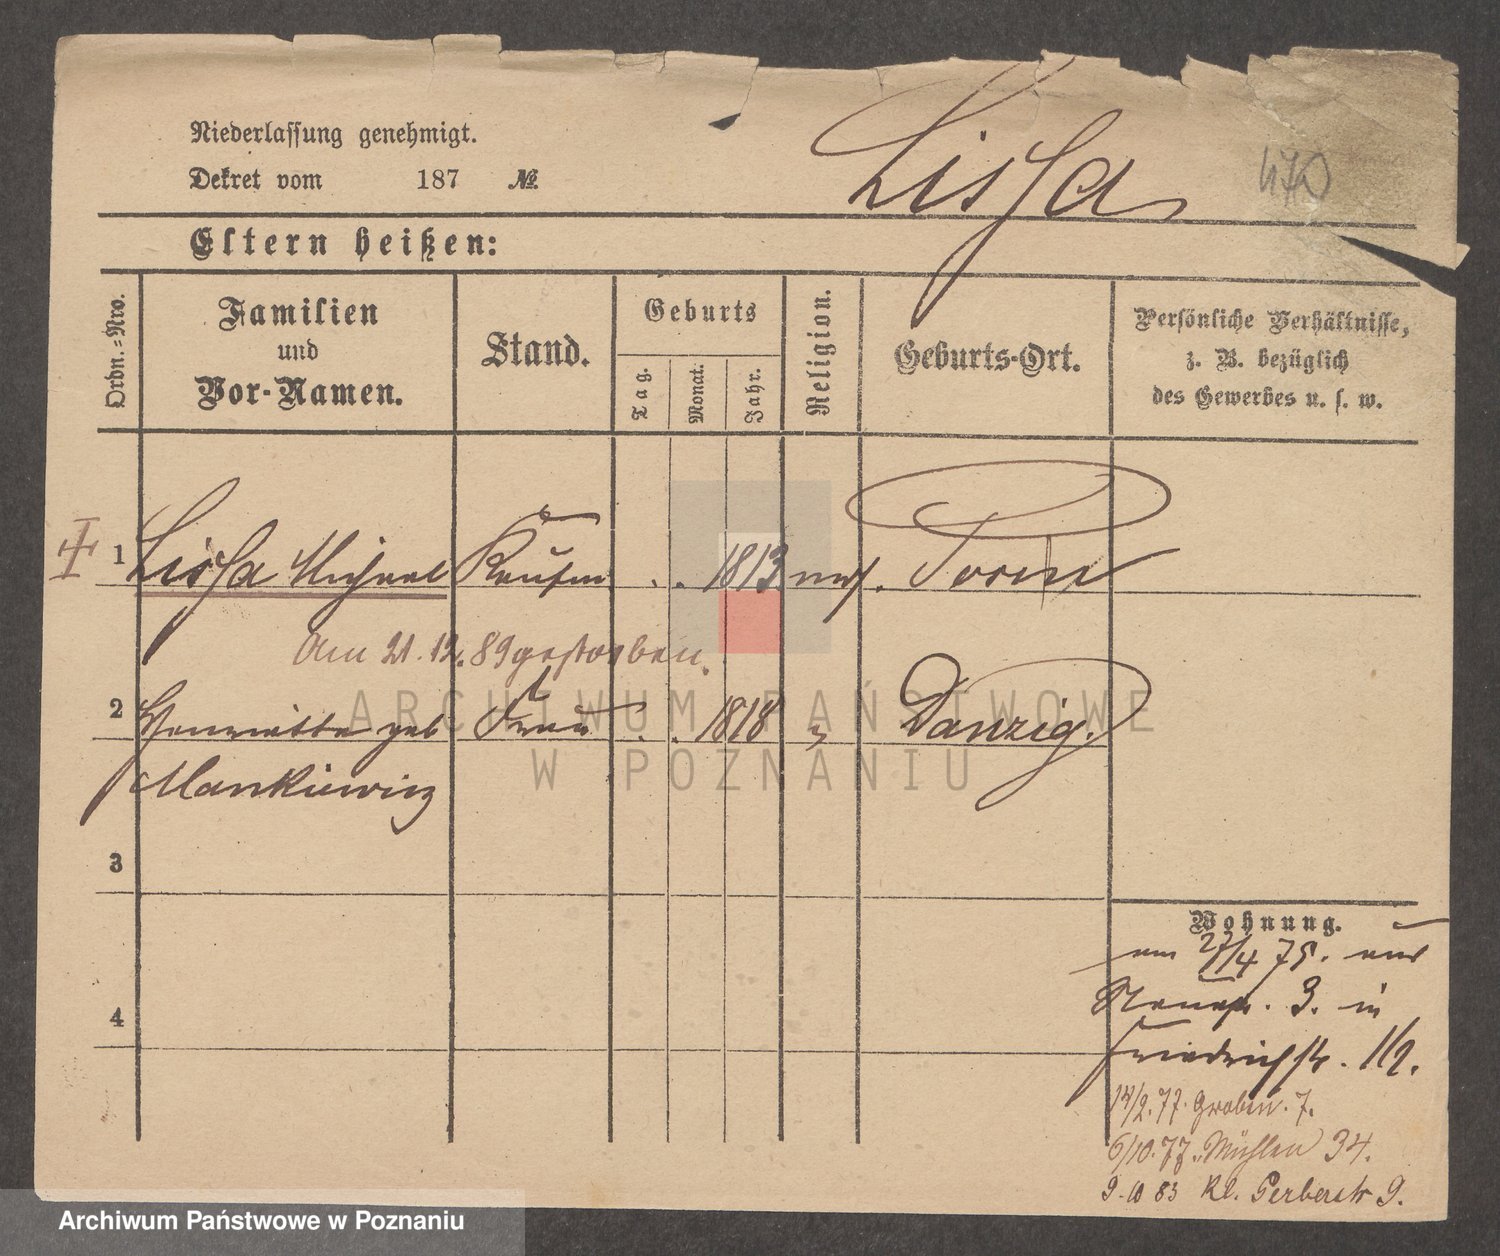 Niederlassung genehmigt.
Dekret vom 187 №
Lissa
470
Eltern heißen:
Ordn.-Nro.
Familien
und
Vor-Namen.
Stand.
Geburts
Tag.
Monat.
Jahr.
Religion.
Geburts-Ort.
Persönliche Verhältnisse,
z. B. bezüglich
des Gewerbes u. s. w.
1 Lissa Michael Kaufm . . 1813 mos. Posen
Am 21.12.89 gestorben.
2 Henriette geb Frau . . 1818 Danzig.
Mankiewicz
3
4
Wohnung.
am 27/4 75. aus
3. in
Friedrichstr. 1/2.
14/2.77. Graben. 7.
6/10.77. Mühlen 34.
9.10 83 Kl. Gerberstr 9.
ARCHIWUM PAŃSTWOWE
W POZNANIU
Archiwum Państwowe w Poznaniu